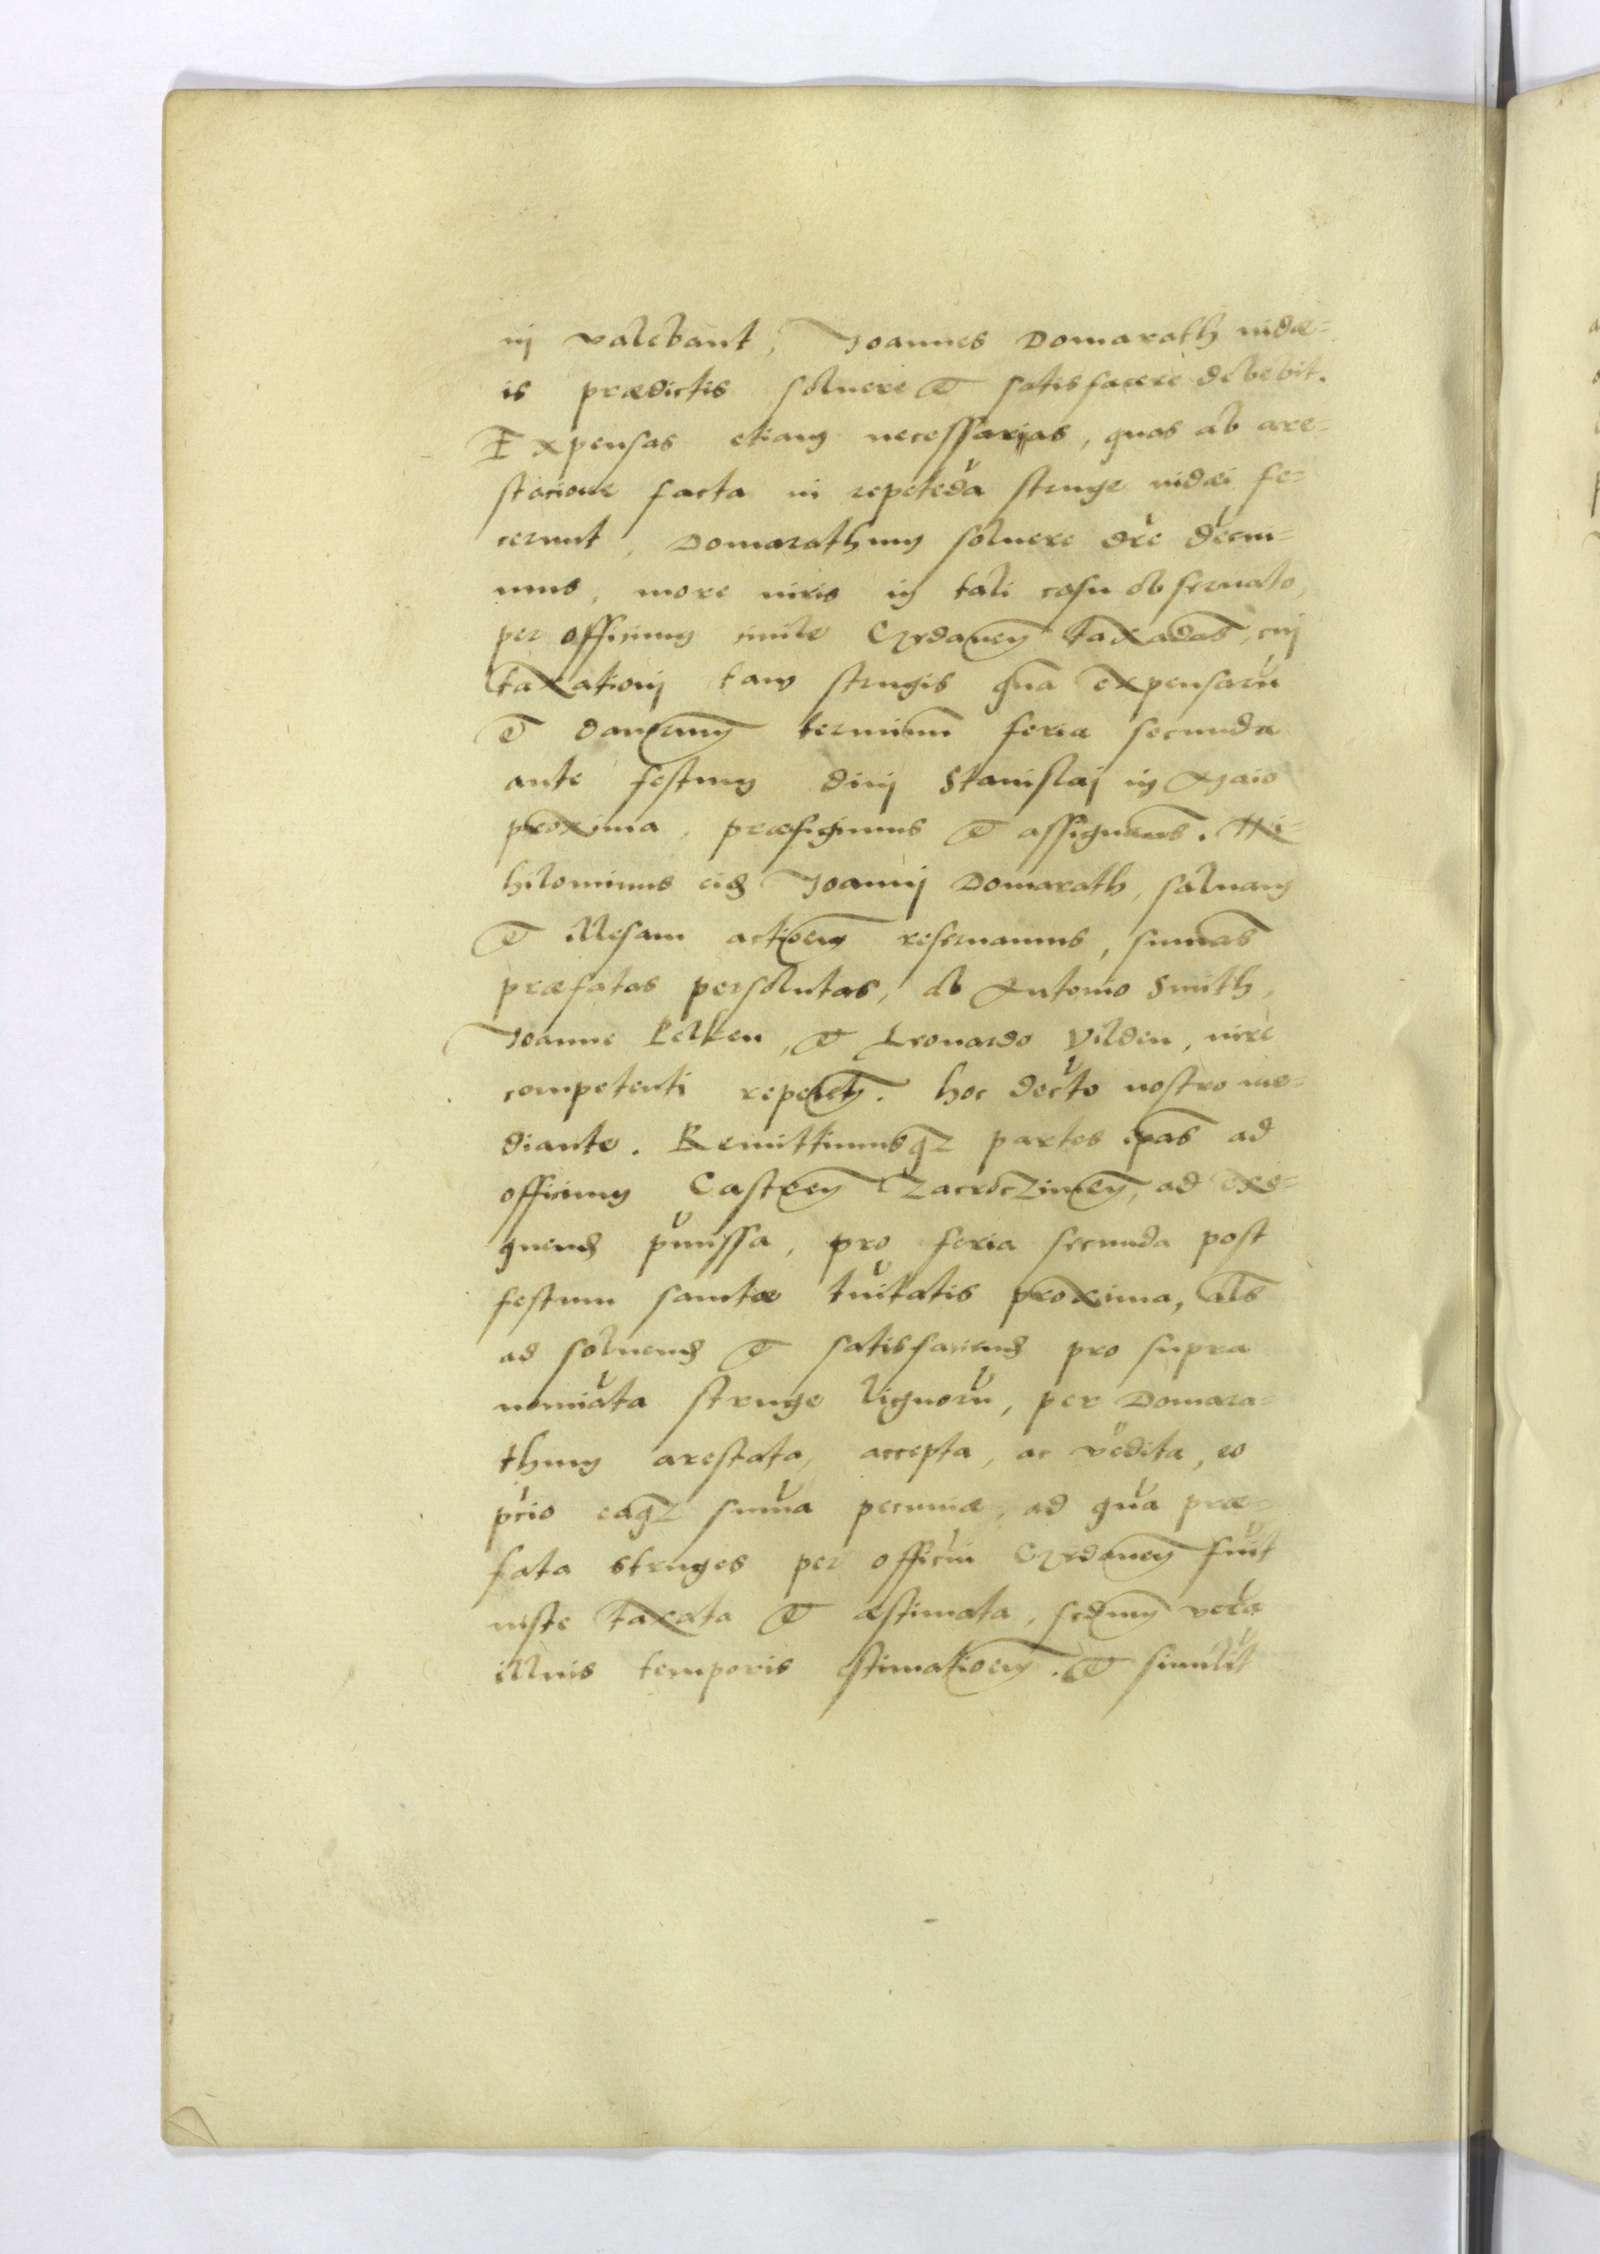 ni valebant, Joannes Domarath iudæ-
is prædictis soluere et satisfacere debebit.
Expensas etiam necessarias, quas ab are-
stacione facta in repetēda struge iudæi fe-
cerunt, Domarathum soluere dēre dēcrni-
mus, more iuris in tali casu obseruato,
per officium ciuile Gedanen taxādas, cui
taxationi tam strugis quā expensarū
et damnorum terminum feria secunda
ante festum diui Stanislai in Maio
proxima, præfigimus et assignamus. Ni-
hilominus eid Joanni Domarath, saluam
et illesam actioem reseruamus, summas
præfatas persolutas, ab Antonio Smith,
Joanne Kelken, et Leonardo Vilden, iure
competenti repetendi. hoc decrto nostro me-
diante. Remittimusq partes ipas ad
officium Castren Zacroczimen, ad exe-
quend prmissa, pro feria secunda post
festum sanctæ trnitatis proxima, als
ad soluend et satisfaciend pro supra
nominata struge lignorū, per Domara-
thum arestata, accepta, ac vēdita, eo
prcio eaq summa pecuniæ, ad quā præ-
fata struges per officiū Gedanen fuit
iuste taxata et æstimata, secdum verā
illius temporis estimatioem. et similit